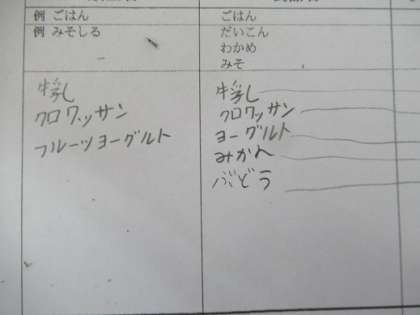 例 ごはん
例 みそしる
ごはん
だいこん
わかめ
みそ
牛乳
クロワッサン
フルーツヨーグルト
牛乳
クロワッサン
ヨーグルト
みかん
ぶどう